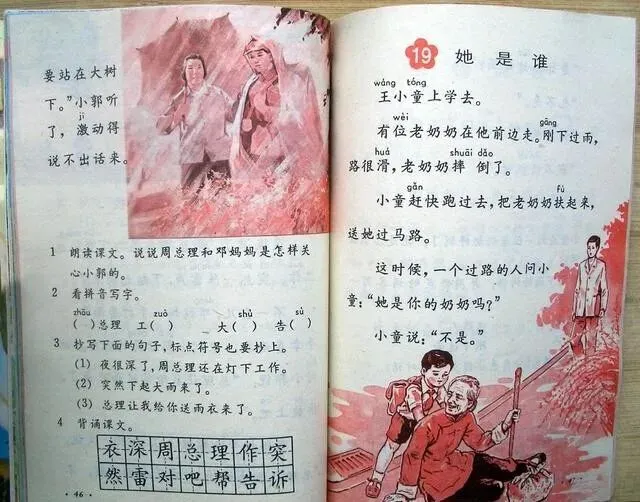 要站在大树
下。”小郭听
jī
了，激动得
说不出话来。
1 朗读课文。说说周总理和邓妈妈是怎样关
心小郭的。
2 看拼音写字。
zhōu zuò shù sù
( )总理 工( ) 大( ) 告( )
3 抄写下面的句子，标点符号也要抄上。
(1) 夜很深了，周总理还在灯下工作。
(2) 突然下起大雨来了。
(3) 总理让我给你送雨衣来了。
4 背诵课文。
衣深周总理作突
然雷对吧帮告诉
· 46 ·
19 她是谁
wáng tóng
王小童上学去。
wèi gāng
有位老奶奶在他前边走。刚下过雨，
huá shuāi dǎo
路很滑，老奶奶摔倒了。
gǎn fú
小童赶快跑过去，把老奶奶扶起来，
送她过马路。
这时候，一个过路的人问小
童：“她是你的奶奶吗？”
小童说：“不是。”